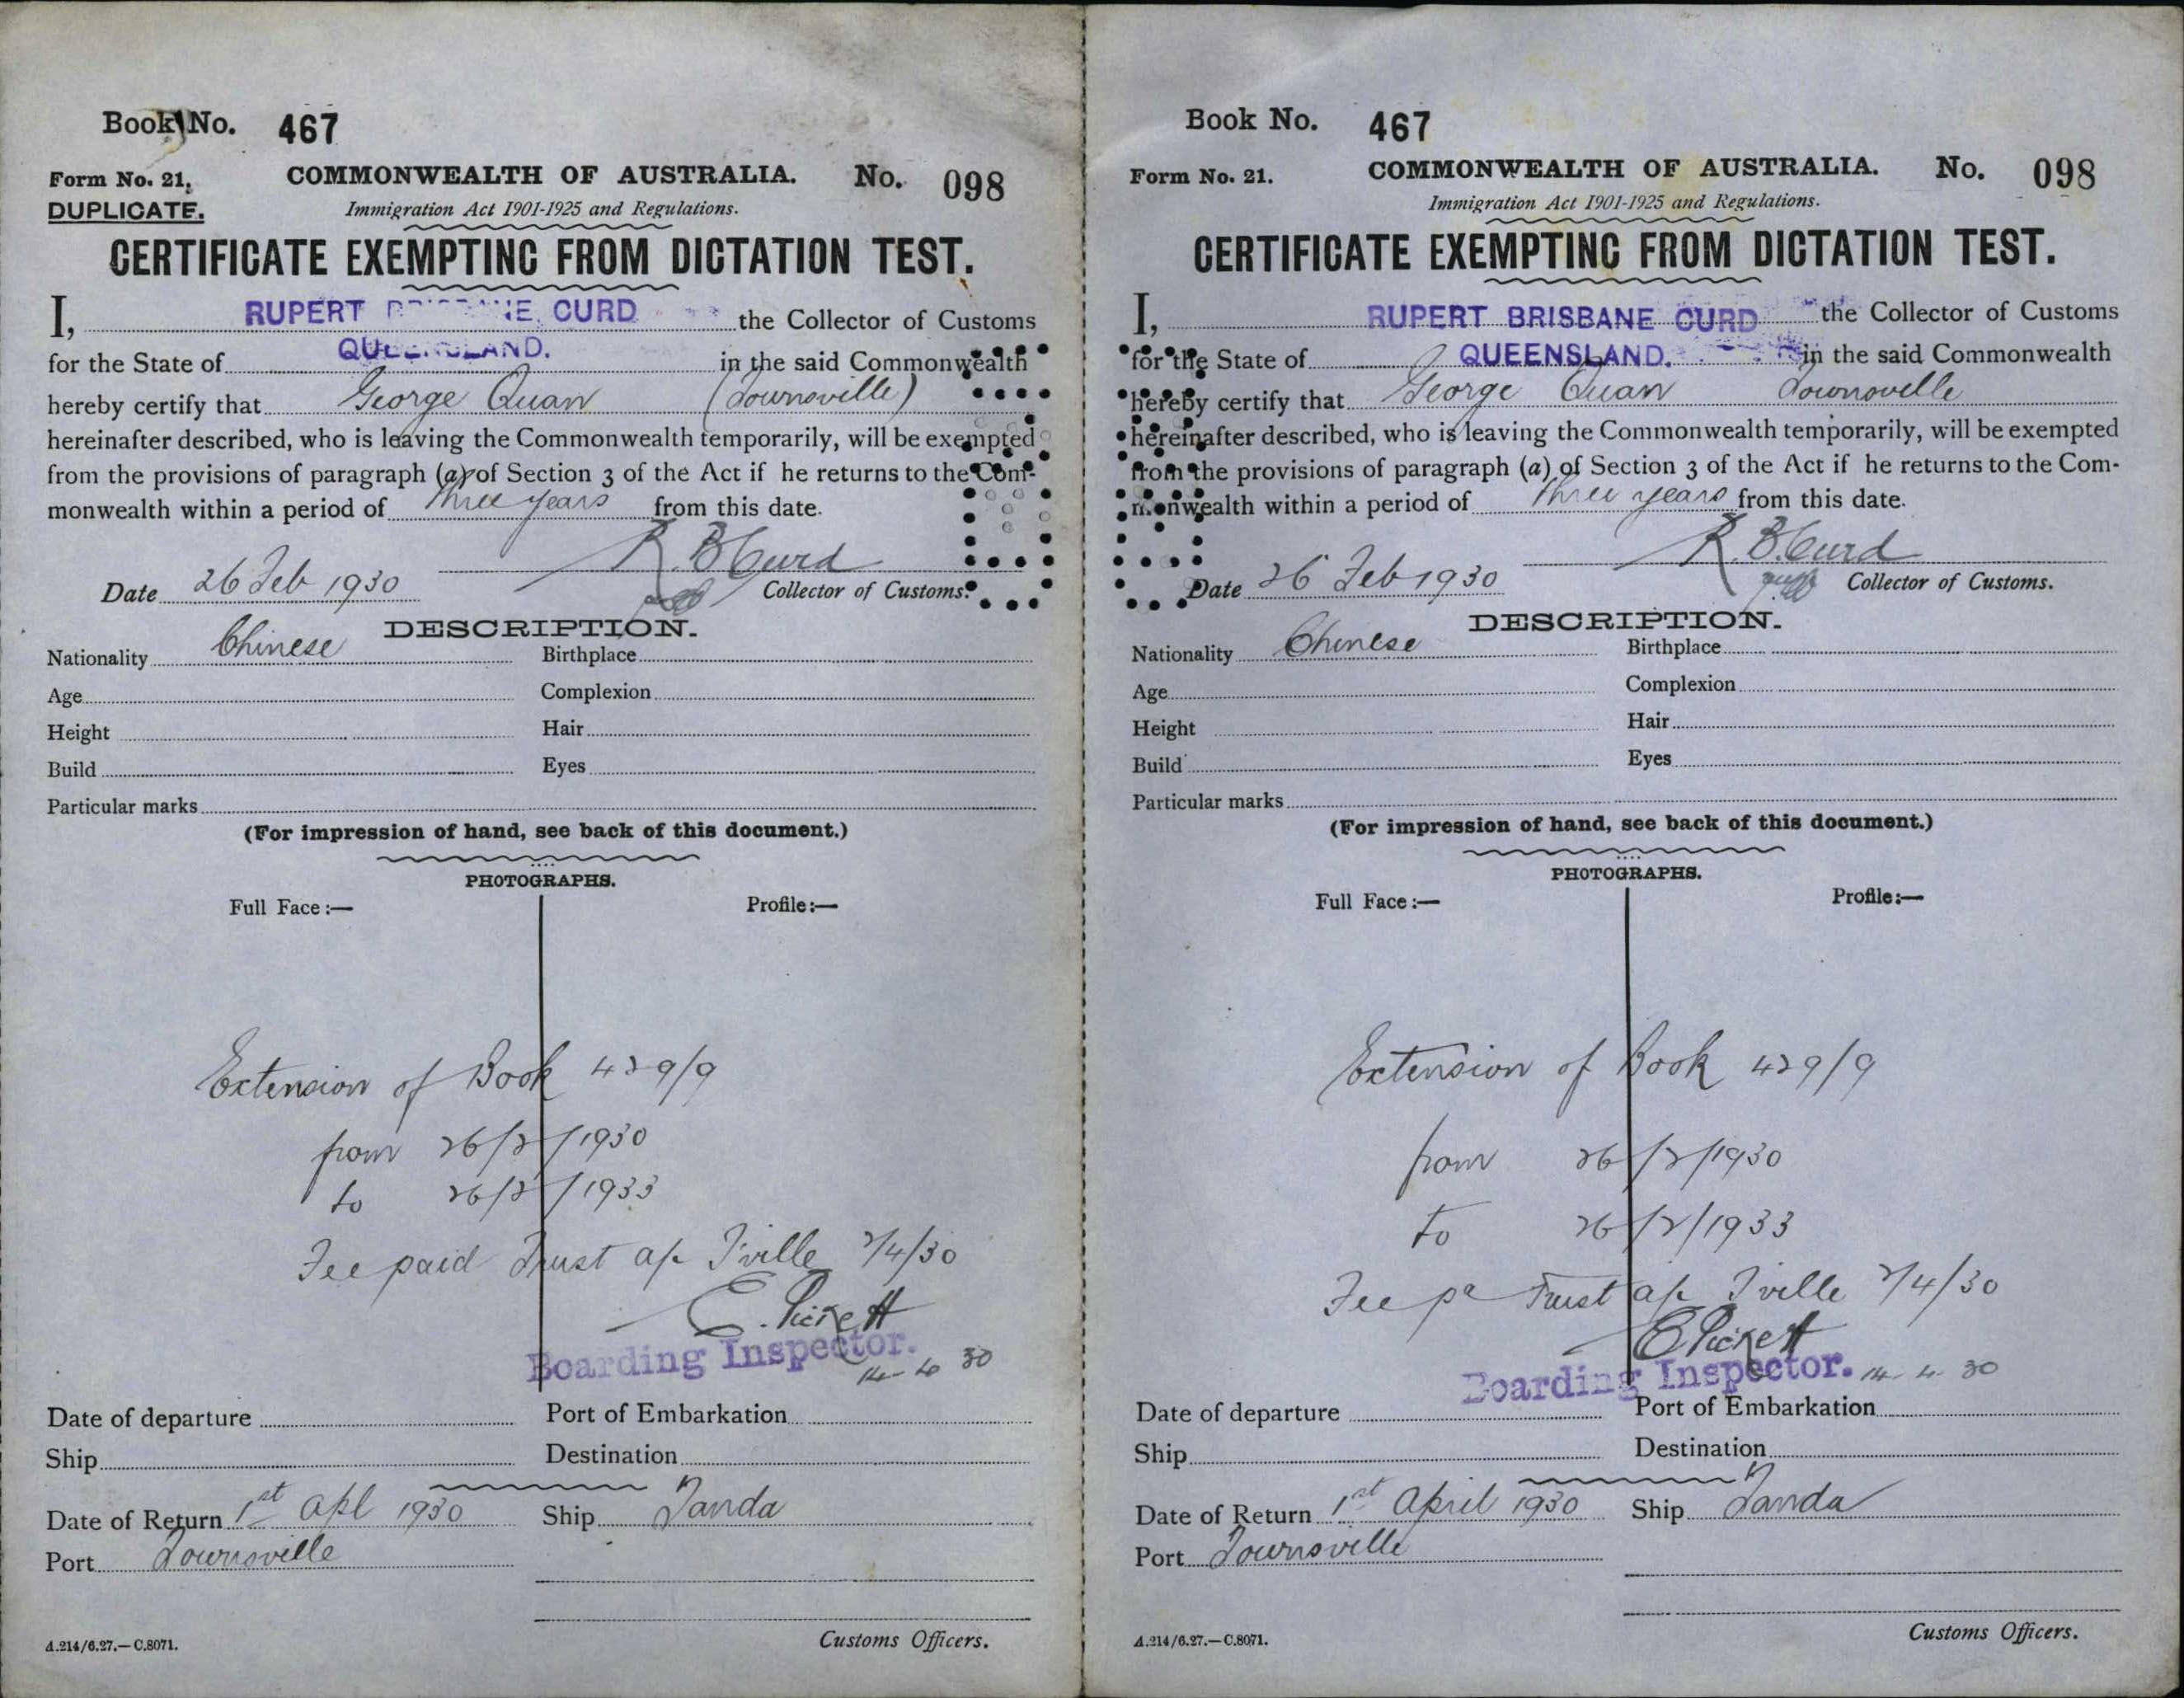 Book No. 467
Form No. 21. COMMONWEALTH OF AUSTRALIA. No. 098
DUPLICATE. Immigration Act 1901-1925 and Regulations.
CERTIFICATE EXEMPTING FROM DICTATION TEST.
I, RUPERT BRISBANE CURD the Collector of Customs
for the State of QUEENSLAND. in the said Commonwealth
hereby certify that George Quan (Townsville)
hereinafter described, who is leaving the Commonwealth temporarily, will be exempted
from the provisions of paragraph (a) of Section 3 of the Act if he returns to the Com-
monwealth within a period of three years from this date.
R. B Curd
Date 26 Feb 1930 Collector of Customs.
DESCRIPTION.
Nationality Chinese Birthplace
Age Complexion
Height Hair
Build Eyes
Particular marks
(For impression of hand, see back of this document.)
PHOTOGRAPHS.
Full Face:— Profile:—
Extension of Book 429/9
from 26/2/1930
to 26/2/1933
Fee paid Trust a/c T'ville 2/4/30
E. Pickett
Boarding Inspector.
14-4 30
Date of departure Port of Embarkation
Ship Destination
Date of Return 1st Apl 1930 Ship Tanda
Port Townsville
A.214/6.27.—C.8071. Customs Officers.
Book No. 467
Form No. 21. COMMONWEALTH OF AUSTRALIA. No. 098
Immigration Act 1901-1925 and Regulations.
CERTIFICATE EXEMPTING FROM DICTATION TEST.
I, RUPERT BRISBANE CURD the Collector of Customs
for the State of QUEENSLAND. in the said Commonwealth
hereby certify that George Quan Townsville
hereinafter described, who is leaving the Commonwealth temporarily, will be exempted
from the provisions of paragraph (a) of Section 3 of the Act if he returns to the Com-
monwealth within a period of three years from this date.
R. B. Curd
Date 26 Feb 1930 Collector of Customs.
DESCRIPTION.
Nationality Chinese Birthplace
Age Complexion
Height Hair
Build Eyes
Particular marks
(For impression of hand, see back of this document.)
PHOTOGRAPHS.
Full Face:— Profile:—
Extension of Book 429/9
from 26/2/1930
to 26/2/1933
Fee pd Trust a/c Tville 2/4/30
E Pickett
Boarding Inspector. 14. 4. 30
Date of departure Port of Embarkation
Ship Destination
Date of Return 1st April 1930 Ship Tanda
Port Townsville
A.214/6.27.—C.8071. Customs Officers.